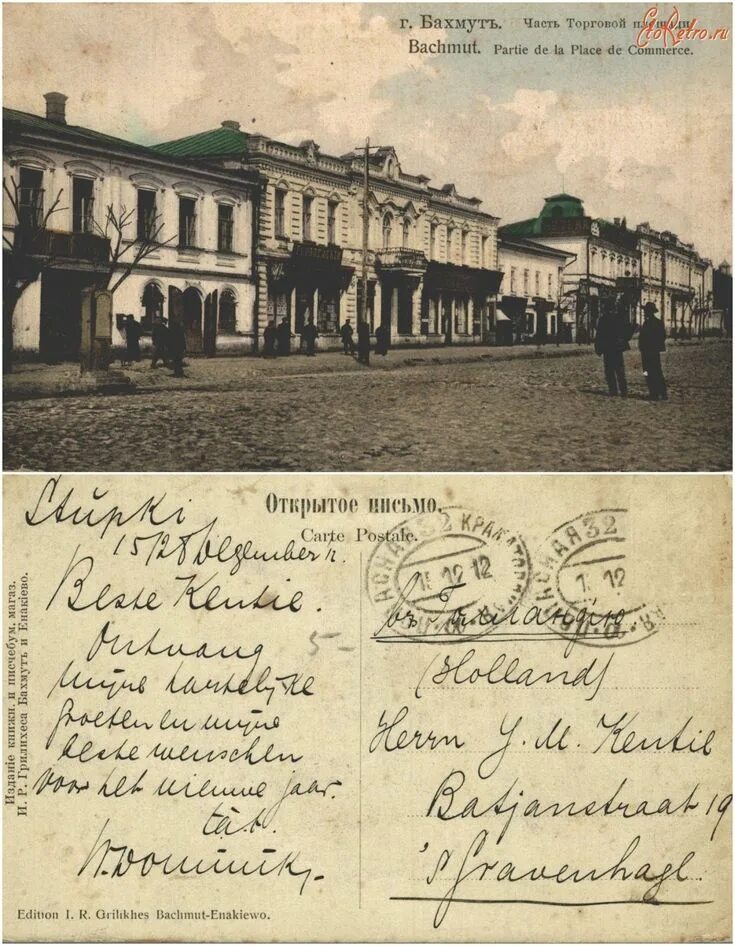 г. Бахмутъ. Часть Торговой площади
EtoRetro.ru
Bachmut. Partie de la Place de Commerce.
Открытое письмо.
Carte Postale.
Stupki
15/28 Dezember
Beste Kentie.
Ontvang
mijne hartelijke
groeten en mijne
beste wenschen
voor het nieuwe jaar.
t.à.t.
W. Dominik
5-
КРАМАТОР
32
15 12 12
32
12
въ Голландію
(Holland)
Herrn J. M. Kentie
Batjanstraat 19
's Gravenhage.
Изданіе книжн. и писчебум. магаз.
И. Р. Грилихеса Бахмутъ и Енакіево.
Edition I. R. Grilikhes Bachmut-Enakiewo.